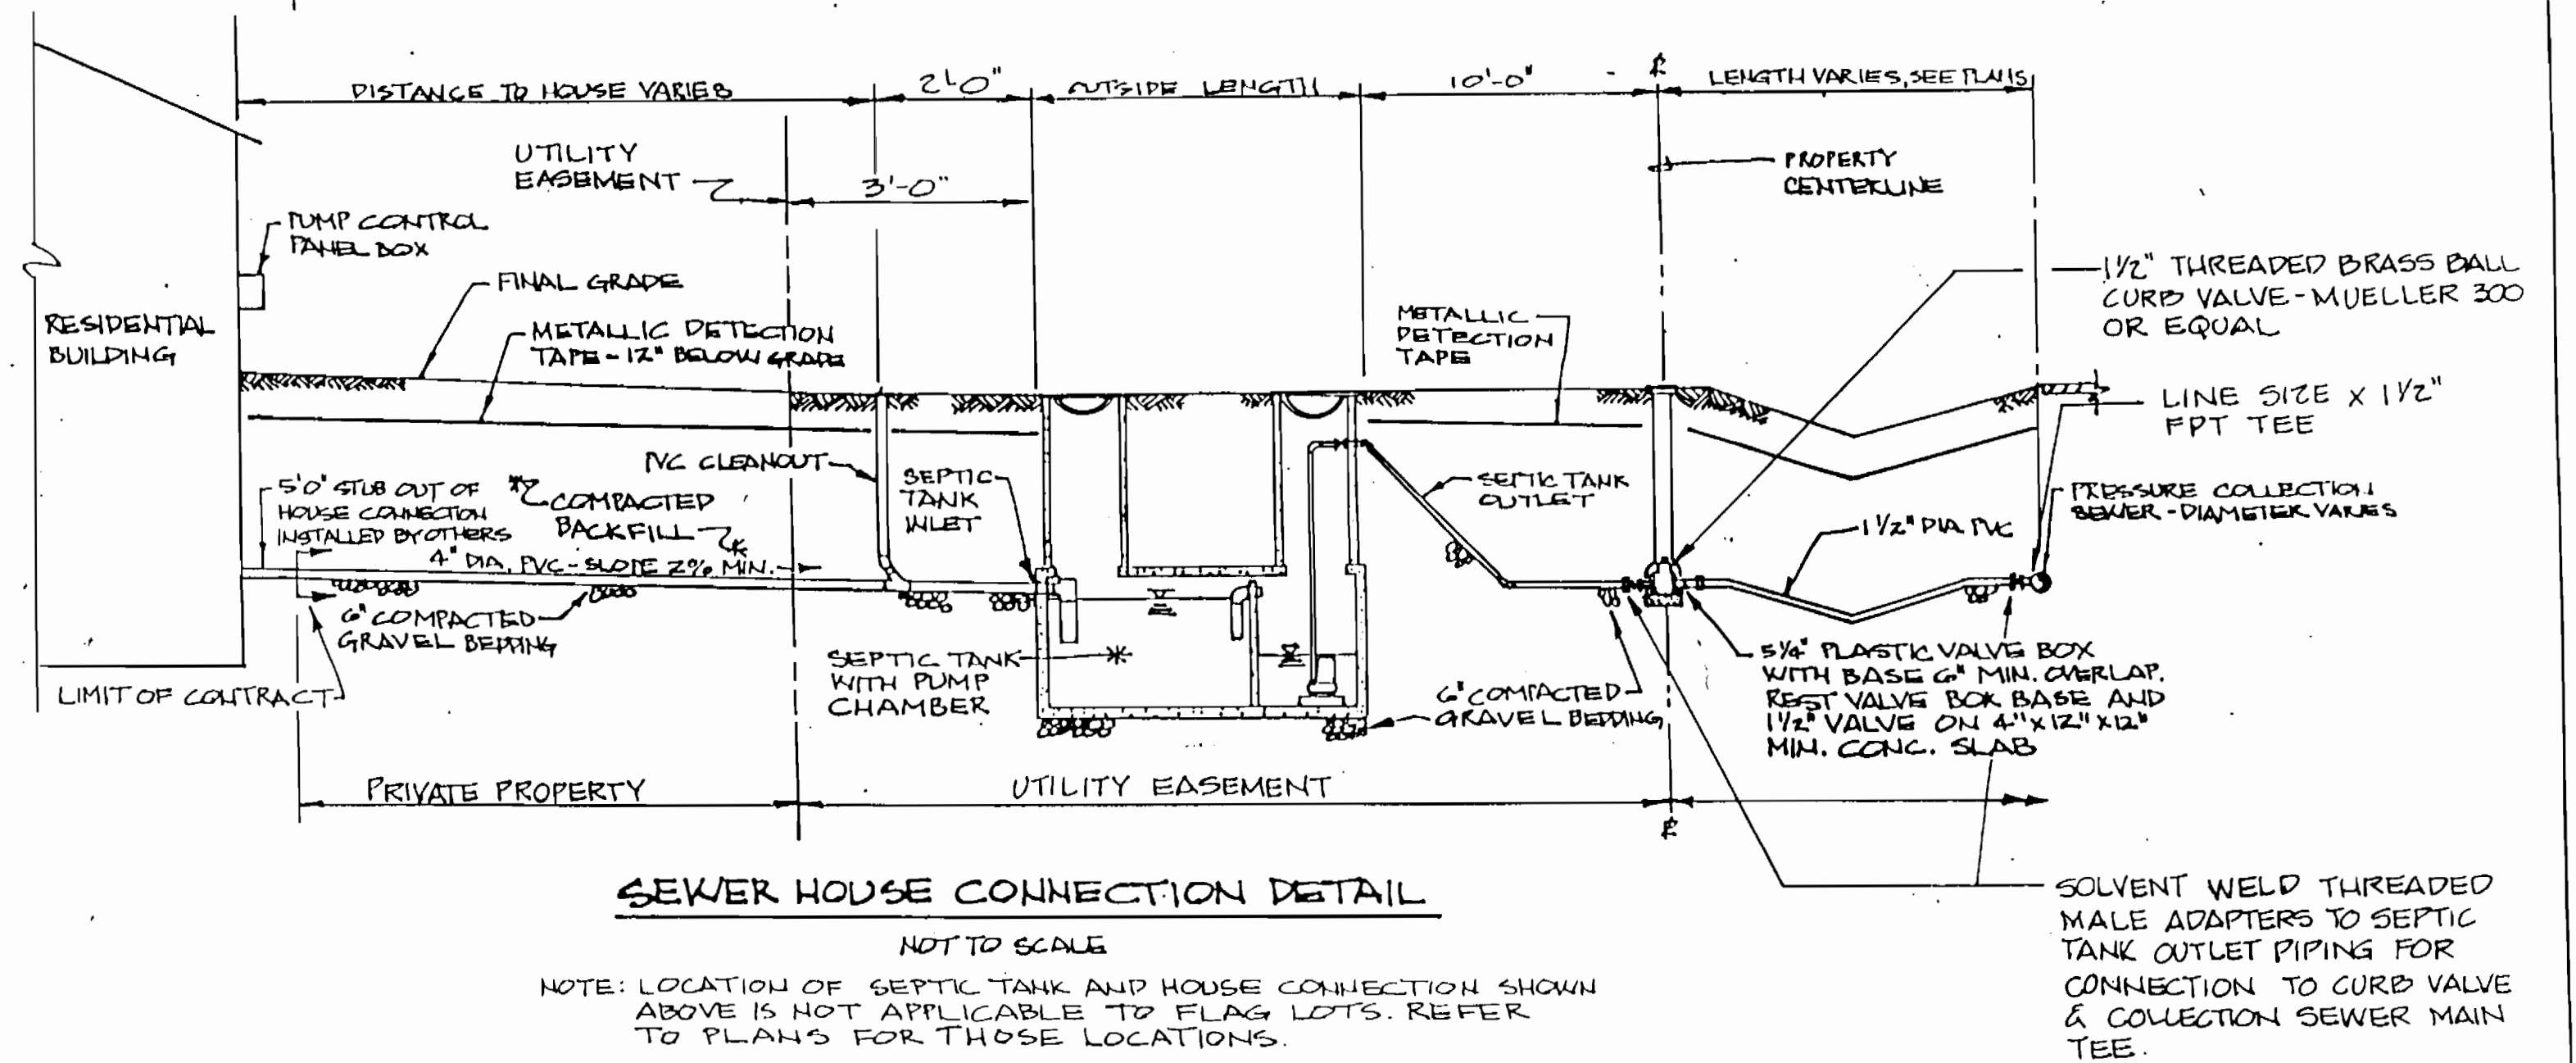 DISTANCE TO HOUSE VARIES
2'-0"
OUTSIDE LENGTH
10'-0"
℄
LENGTH VARIES, SEE PLANS
UTILITY
EASEMENT
3'-0"
PROPERTY
CENTERLINE
PUMP CONTROL
PANEL BOX
FINAL GRADE
METALLIC DETECTION
TAPE - 12" BELOW GRADE
RESIDENTIAL
BUILDING
METALLIC
DETECTION
TAPE
1 1/2" THREADED BRASS BALL
CURB VALVE - MUELLER 300
OR EQUAL
LINE SIZE x 1 1/2"
FPT TEE
PVC CLEANOUT
SEPTIC
TANK
INLET
SEPTIC TANK
OUTLET
5'0" STUB OUT OF
HOUSE CONNECTION
INSTALLED BY OTHERS
COMPACTED
BACKFILL
4" DIA. PVC - SLOPE 2% MIN.
PRESSURE COLLECTION
SEWER - DIAMETER VARIES
1 1/2" DIA PVC
6" COMPACTED
GRAVEL BEDDING
LIMIT OF CONTRACT
SEPTIC TANK
WITH PUMP
CHAMBER
6" COMPACTED
GRAVEL BEDDING
5 1/4" PLASTIC VALVE BOX
WITH BASE 6" MIN. OVERLAP.
REST VALVE BOX BASE AND
1 1/2" VALVE ON 4" x 12" x 12"
MIN. CONC. SLAB
PRIVATE PROPERTY
UTILITY EASEMENT
℄
SEWER HOUSE CONNECTION DETAIL
NOT TO SCALE
NOTE: LOCATION OF SEPTIC TANK AND HOUSE CONNECTION SHOWN
ABOVE IS NOT APPLICABLE TO FLAG LOTS. REFER
TO PLANS FOR THOSE LOCATIONS.
SOLVENT WELD THREADED
MALE ADAPTERS TO SEPTIC
TANK OUTLET PIPING FOR
CONNECTION TO CURB VALVE
& COLLECTION SEWER MAIN
TEE.